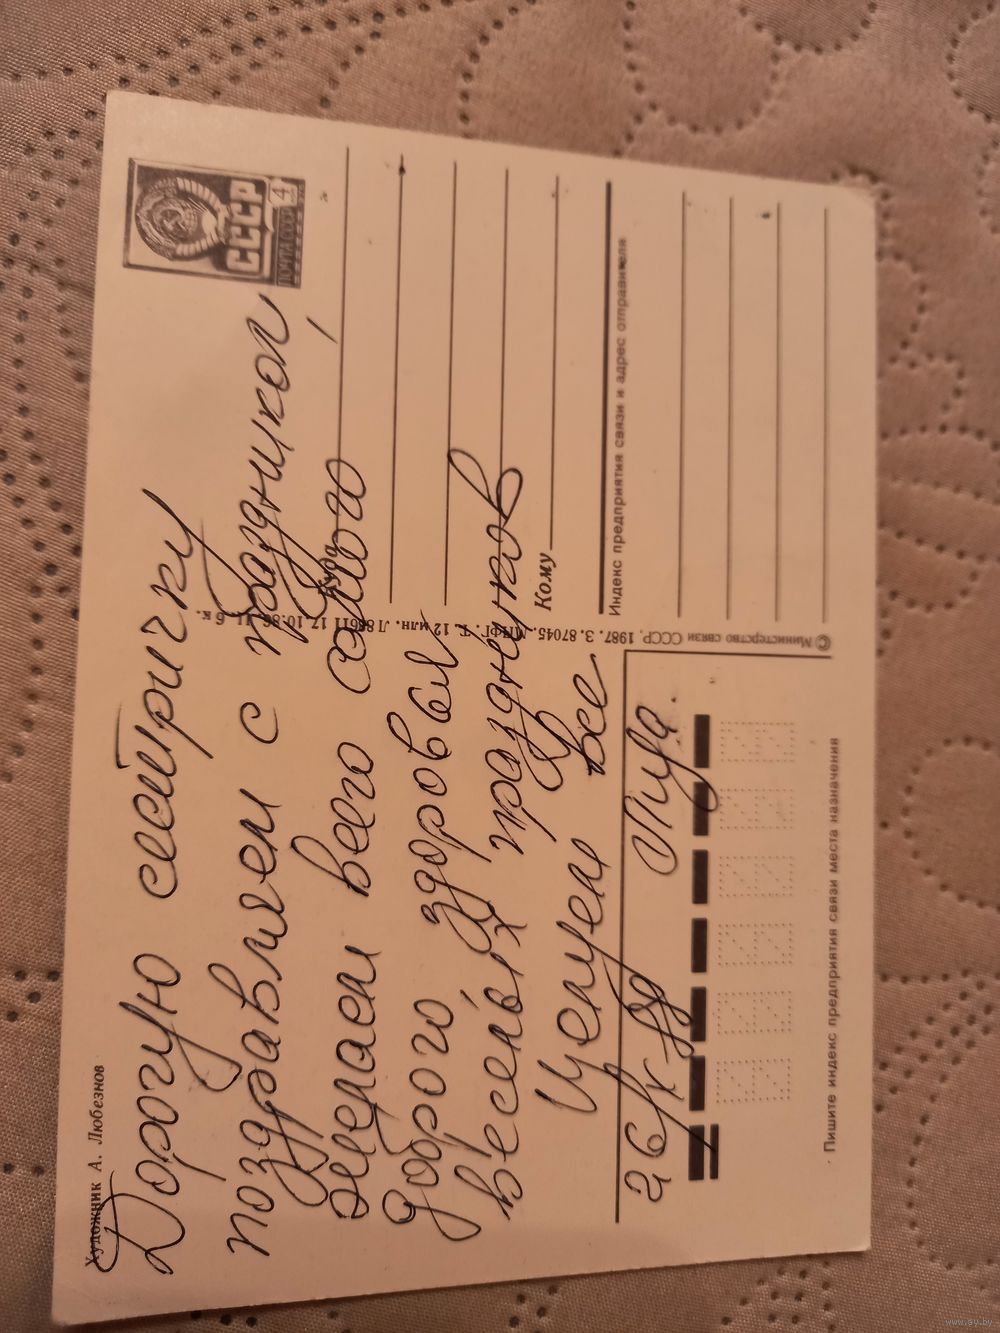 Художник А. Любезнов
СССР
ПОЧТА 1983
4
Дорогую сестричку
поздравляем с праздником,
желаем всего самого
доброго здоровья
весёлых праздников
Целуем все
Куда
Кому
Индекс предприятия связи и адрес отправителя
© Министерство связи СССР, 1987. З. 87045. МПФГ. Т. 12 млн. Л 88611 17.10.86. Ц. 6 к.
Пишите индекс предприятия связи места назначения
www.ay.by